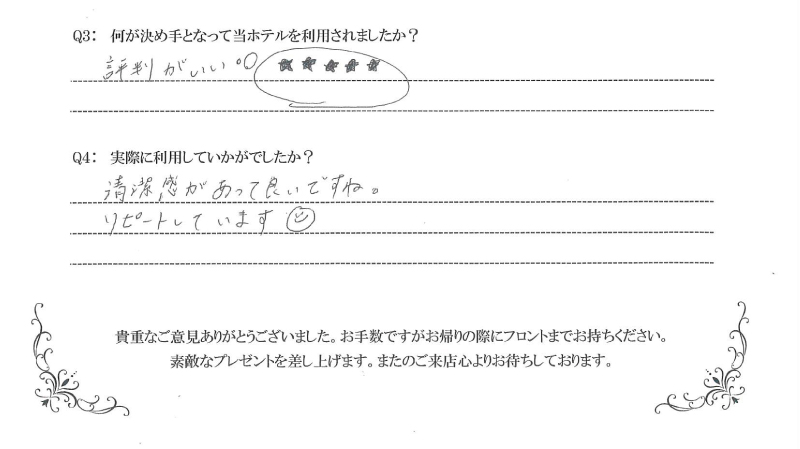 Q3: 何が決め手となって当ホテルを利用されましたか？
評判がいい ★★★★★
Q4: 実際に利用していかがでしたか？
清潔感があって良いですね。
リピートしています
貴重なご意見ありがとうございました。お手数ですがお帰りの際にフロントまでお持ちください。
素敵なプレゼントを差し上げます。またのご来店心よりお待ちしております。